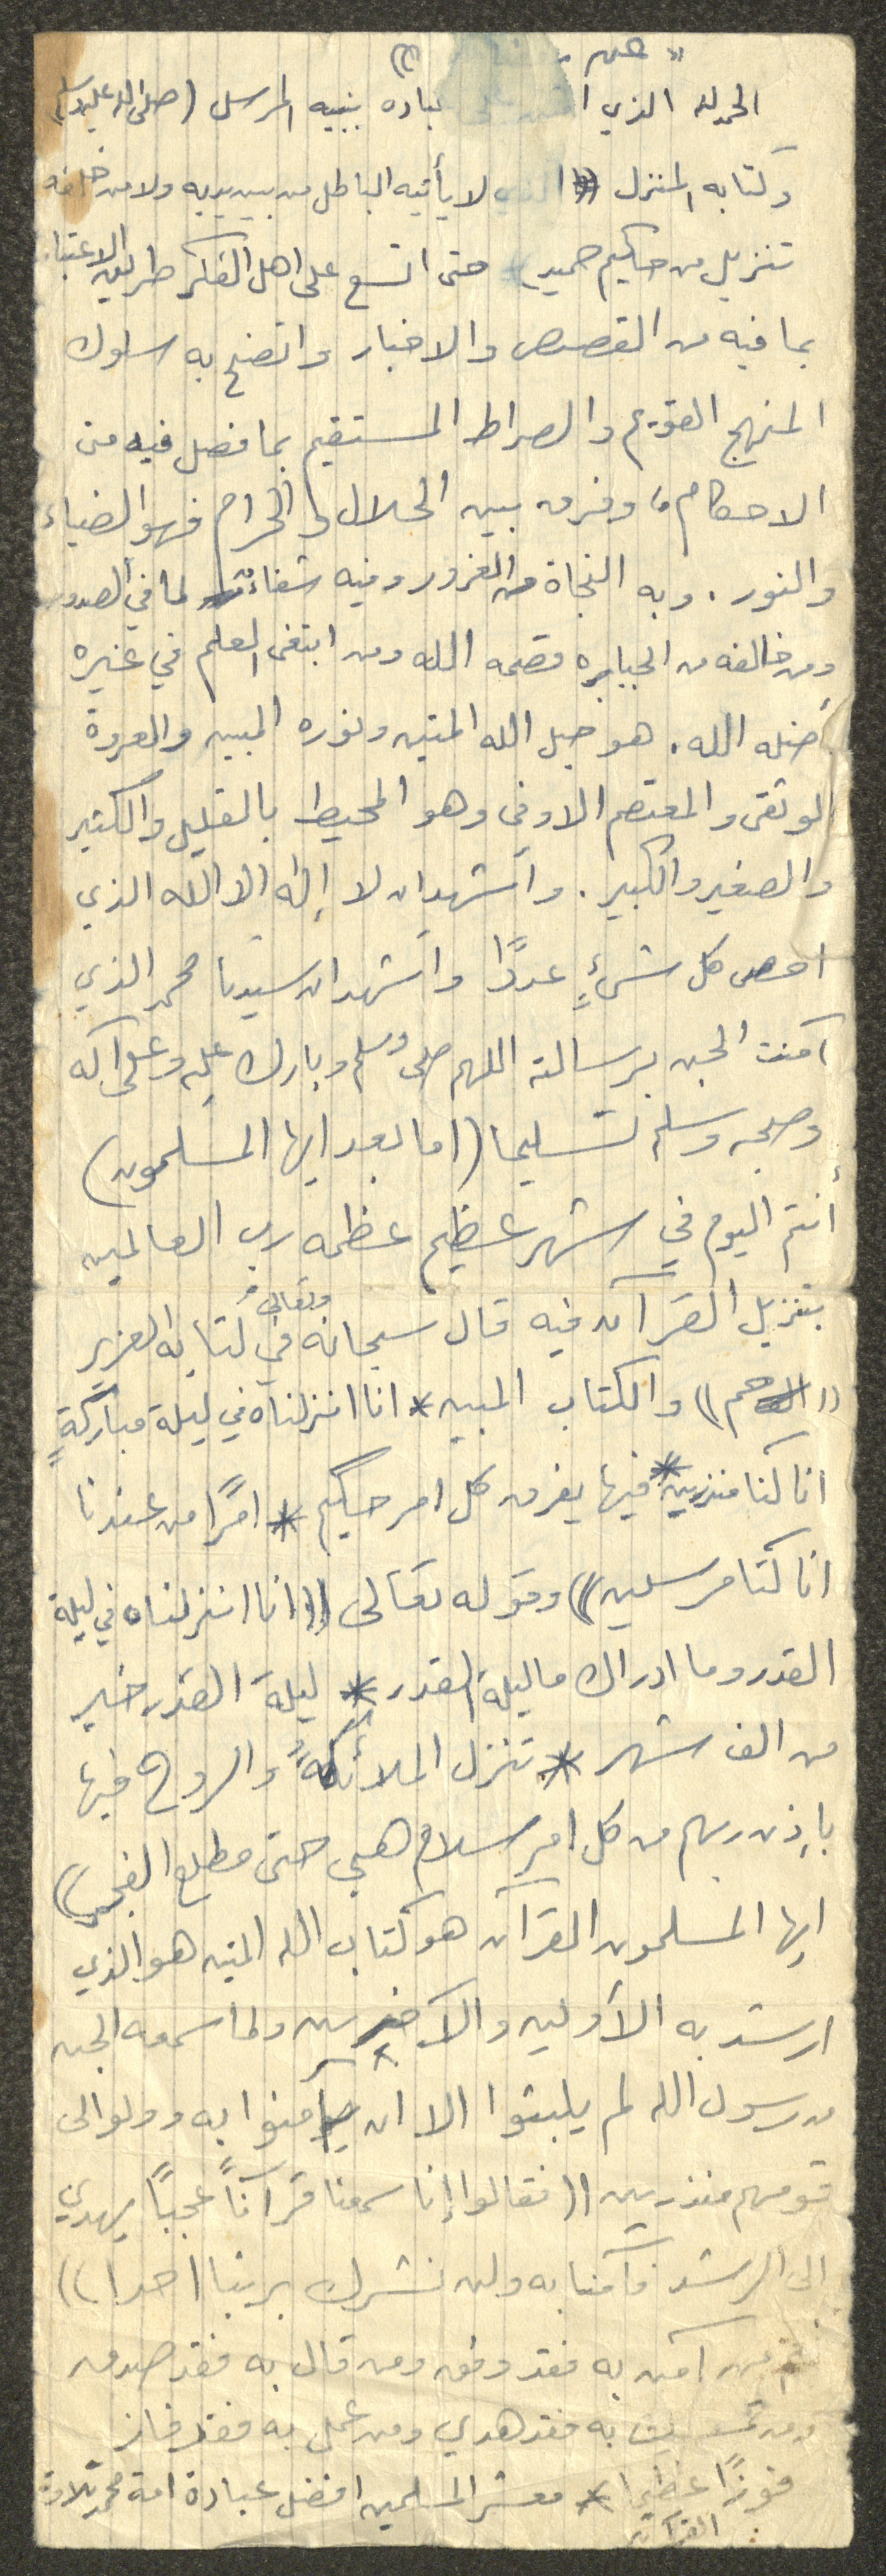 الحمد لله الذي عباده بنبيه المرسل (صلى الله عليه وسلم)
وكتابه المنزل (( الذي لا يأتيه الباطل من بين يديه ولا من خلفه
تنزيل من حكيم حميد) حتى اتسع على اهل الفكر طريق الاعتبار
بما فيه من القصص والاخبار واتضح به سلوك
المنهج القويم والصراط المستقيم بما فصل فيه من
الاحكام، وفرق بين الحلال والحرام فهو الضياء
والنور. وبه النجاة من الغرور وفيه شفاءٌ لما في الصدور
ومن خالفه من الجبابره قصمه الله ومن ابتغى العلم في غيره
أضله الله. هو حبل الله المتين ونوره المبين والعروة
الوثقى والمعتصم الاوفى وهو المحيط بالقليل والكثير
والصغير والكبير. واشهد ان لا إله الا الله الذي
احصى كل شيءٍ عددًا واشهد ان سيدنا محمد الذي
آمنت الجن برسالته اللهم صلى وسلم وبارك عليه وعلى آله
وصحبه وسلم تسليما (اما بعد ايها المسلمون)
أنتم اليوم في شهر عظيم عظمه رب العالمين
بتنزيل القرآن فيه قال سبحانه وتعالى في كتابه العزيز
((حم)) والكتاب المبين * انا انزلناه في ليلة مباركةٍ
انا كنا منذرين * فيها يفرق كل امر حكيم * امرًا من عندنا
انا كنا مرسلين)) وقوله تعالى ((انا انزلناه في ليلة
القدر وما ادراك ما ليلة القدر * ليلة القدر خير
من الف شهر * تنزل الملائكةُ والروح فيها
بإذن ربهم من كل امر سلام هي حتى مطلع الفجر))
ايها المسلمون القرآن هو كتاب الله المتين هو الذي
ارشد به الأولين والآخرين ولما سمعه الجن
من رسول الله لم يلبثوا الا ان آمنوا به وولوا الى
قومهم منذرين ((فقالوا إنا سمعنا قرآنًا عجبًا يهدي
الى الرشد فآمنا به ولن نشرك بربنا احدا))
من آمن به فقد وفق ومن قال به فقد صدق
ومن تمسك به فقد هدي ومن عمل به فقد فاز
فوزًا عظيما * معشر المسلمين افضل عبادة امة محمد تلاوة
القرآن